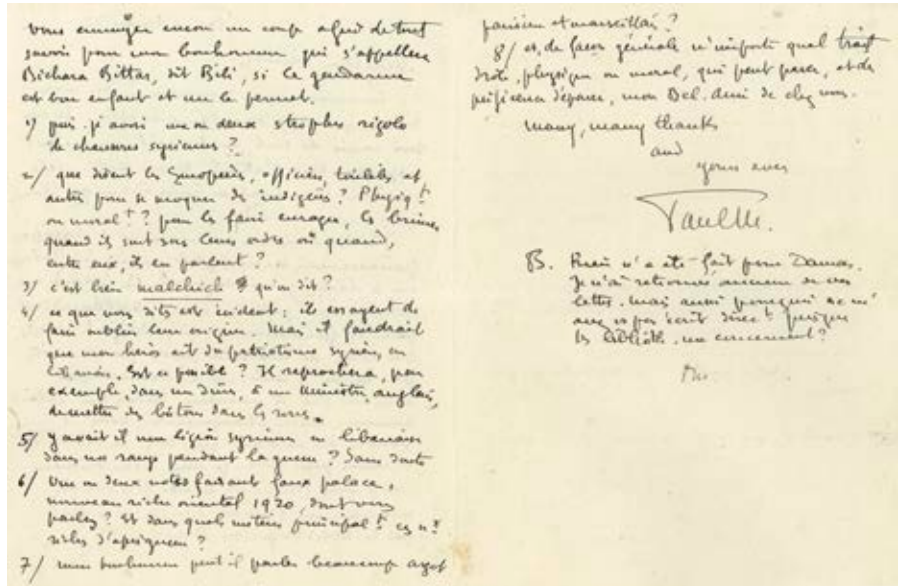 vous ennuyer encore un coup afin de tout
savoir pour mon bonhomme qui s'appellera
Bichara Bittar, dit Bibi, si le gendarme
est bon enfant et me le permet.
1/ puis-je avoir une ou deux strophes rigolo
de chansons syriennes ?
2/ que disent les Européens, officiers, et
autres pour se moquer des indigènes ? Physiqt
ou moralt ? pour les faire enrager, les brimer
quand ils sont sous leurs ordres ou quand,
entre eux, ils en parlent ?
3/ c'est bien malchich qu'on dit ?
4/ ce que vous dites est évident : ils essayent de
faire oublier leur origine. Mais il faudrait
que mon héros ait du patriotisme syrien ou
libanais. Est-ce possible ? Il reprochera, par
exemple, dans un dîner, à un ministre anglais,
de mettre des bâtons dans les roues.
5/ y avait-il une légion syrienne ou libanaise
dans nos rangs pendant la guerre ? Sans doute
6/ Une ou deux notes faisant faux palace,
nouveau riche oriental 1920, dont vous
parlez ? Et dans quels métiers principalt ces nx
riches d'après guerre ?
7/ mon bonhomme peut-il parler beaucoup argot
parisien et marseillais ?
8/ et, de façon générale n'importe quel trait
drôle, physique ou moral, qui peut parer, et de
préférence déparer, mon Bel-Ami de chez vous.
Many, many thanks
and
yours ever
Rien n'a été fait pour Damas.
Je n'ai retrouvé aucune de vos
lettres. Mais aussi pourquoi ne m'
avez vs pas écrit direct puisque
les biblioth. me concernent ?